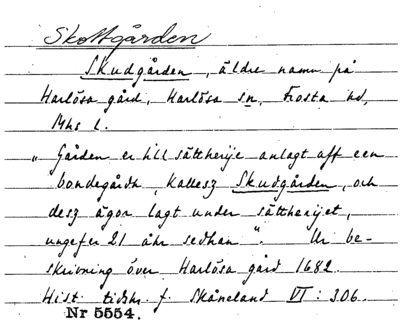 Skottgården
Skudgården, äldre namn på
Harlösa gård, Harlösa sn, Frosta hd,
Mhs l.
"Gården er till sättherije anlagt aff een
bondegårdh, kallesz Skudgården, och
desz ägor lagt under sättherijet,
ungefer 21 åhr sedhan". Ur be-
skrivning över Harlösa gård 1682.
Hist. tidskr. f. Skåneland VI: 306.
Nr 5554.